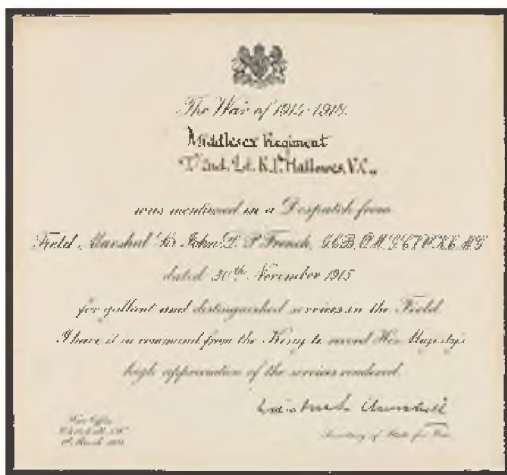 The War of 1914-1918.
Middlesex Regiment
T/2nd. Lt. R.P. Hallowes, V.C.,
was mentioned in a Despatch from
Field Marshal Sir John D. P. French, G.C.B., O.M., G.C.V.O., K.C.M.G.
dated 30th November 1915
for gallant and distinguished services in the Field.
I have it in command from the King to record His Majesty's
high appreciation of the services rendered.
Winston S. Churchill
Secretary of State for War.
War Office
Whitehall, S.W.
1st March 1919.